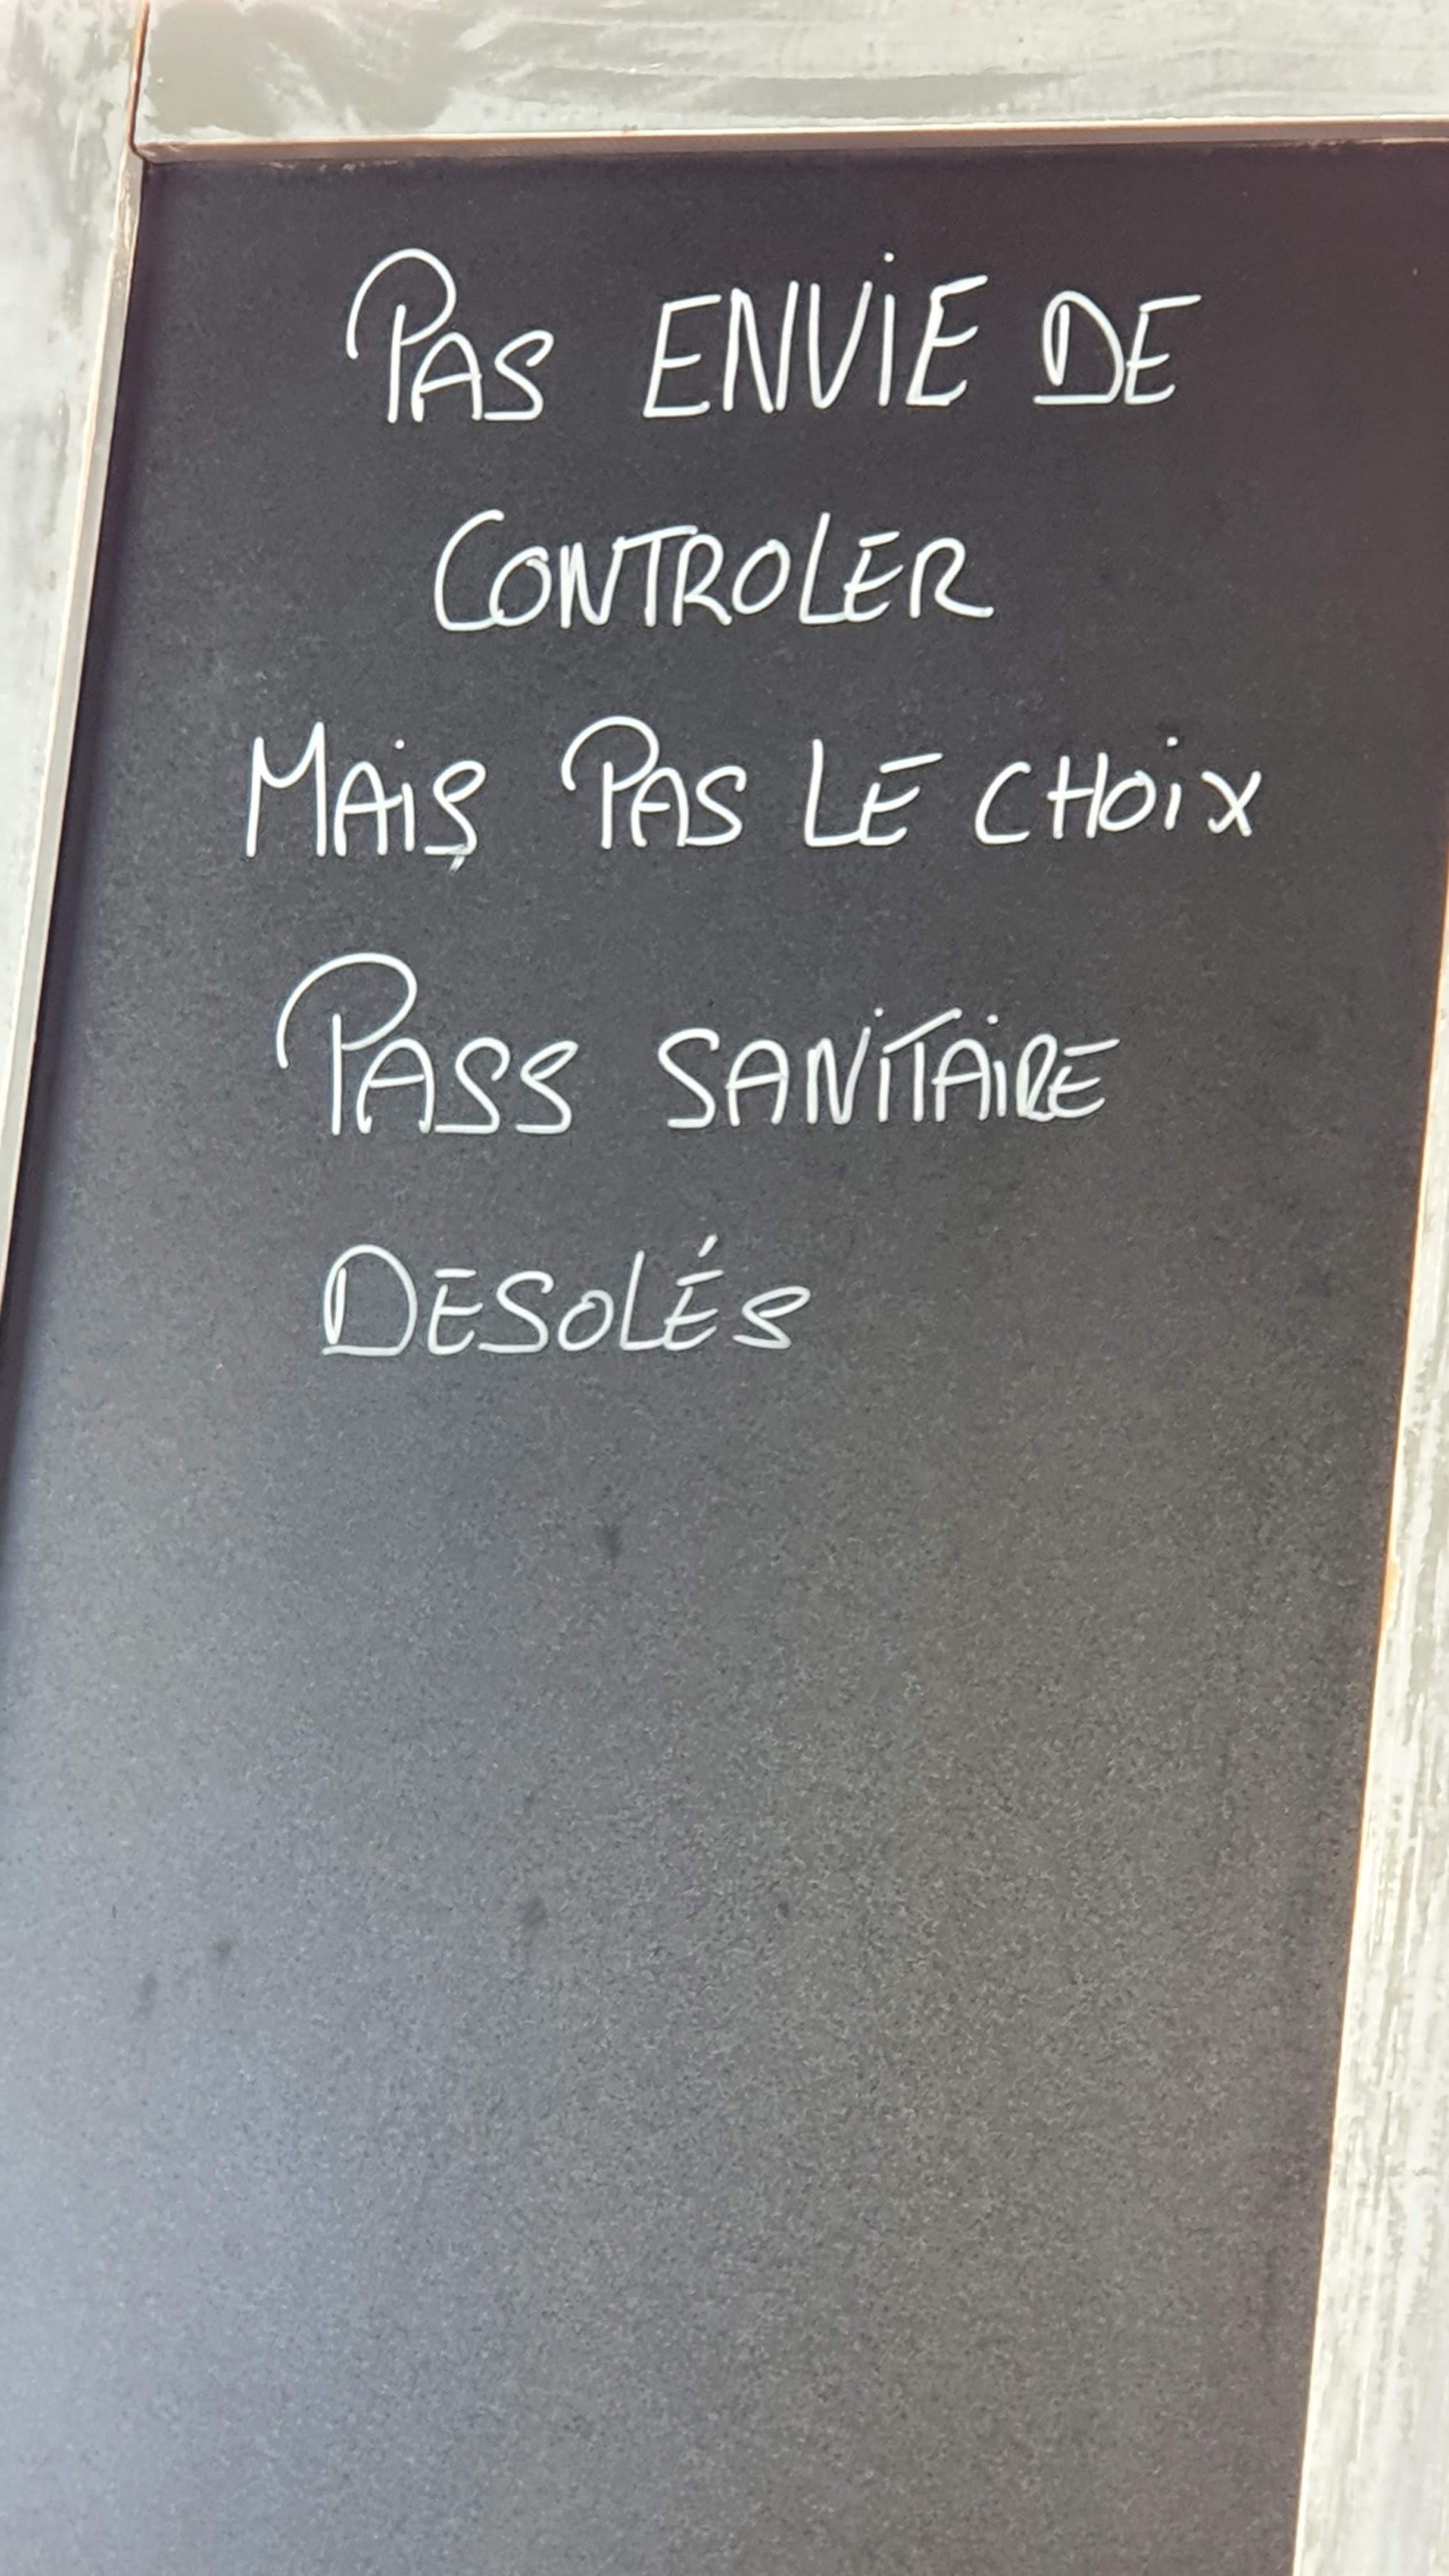 PAS ENVIE DE
CONTROLER
MAIS PAS LE CHOIX
PASS SANITAIRE
DESOLÉS